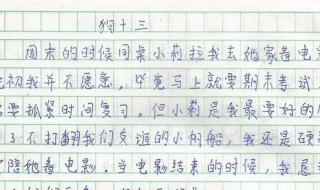 狗十三
周末的时候同桌小莉拉我去她家看电
初我并不愿意，毕竟马上就要期末考试
要抓紧时间复习。但小莉是我最要好的
了不打翻我们友谊的小帆船，我还是硬
陪她看电影。当电影结束的时候，我忽